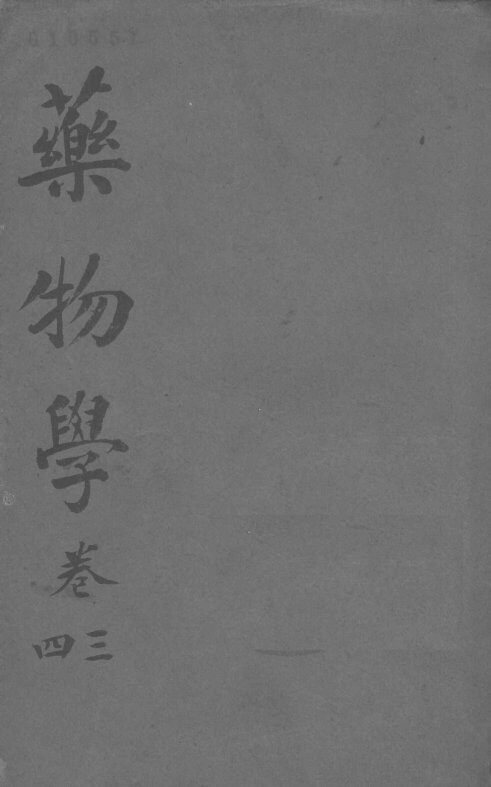 010557
藥物學卷三四